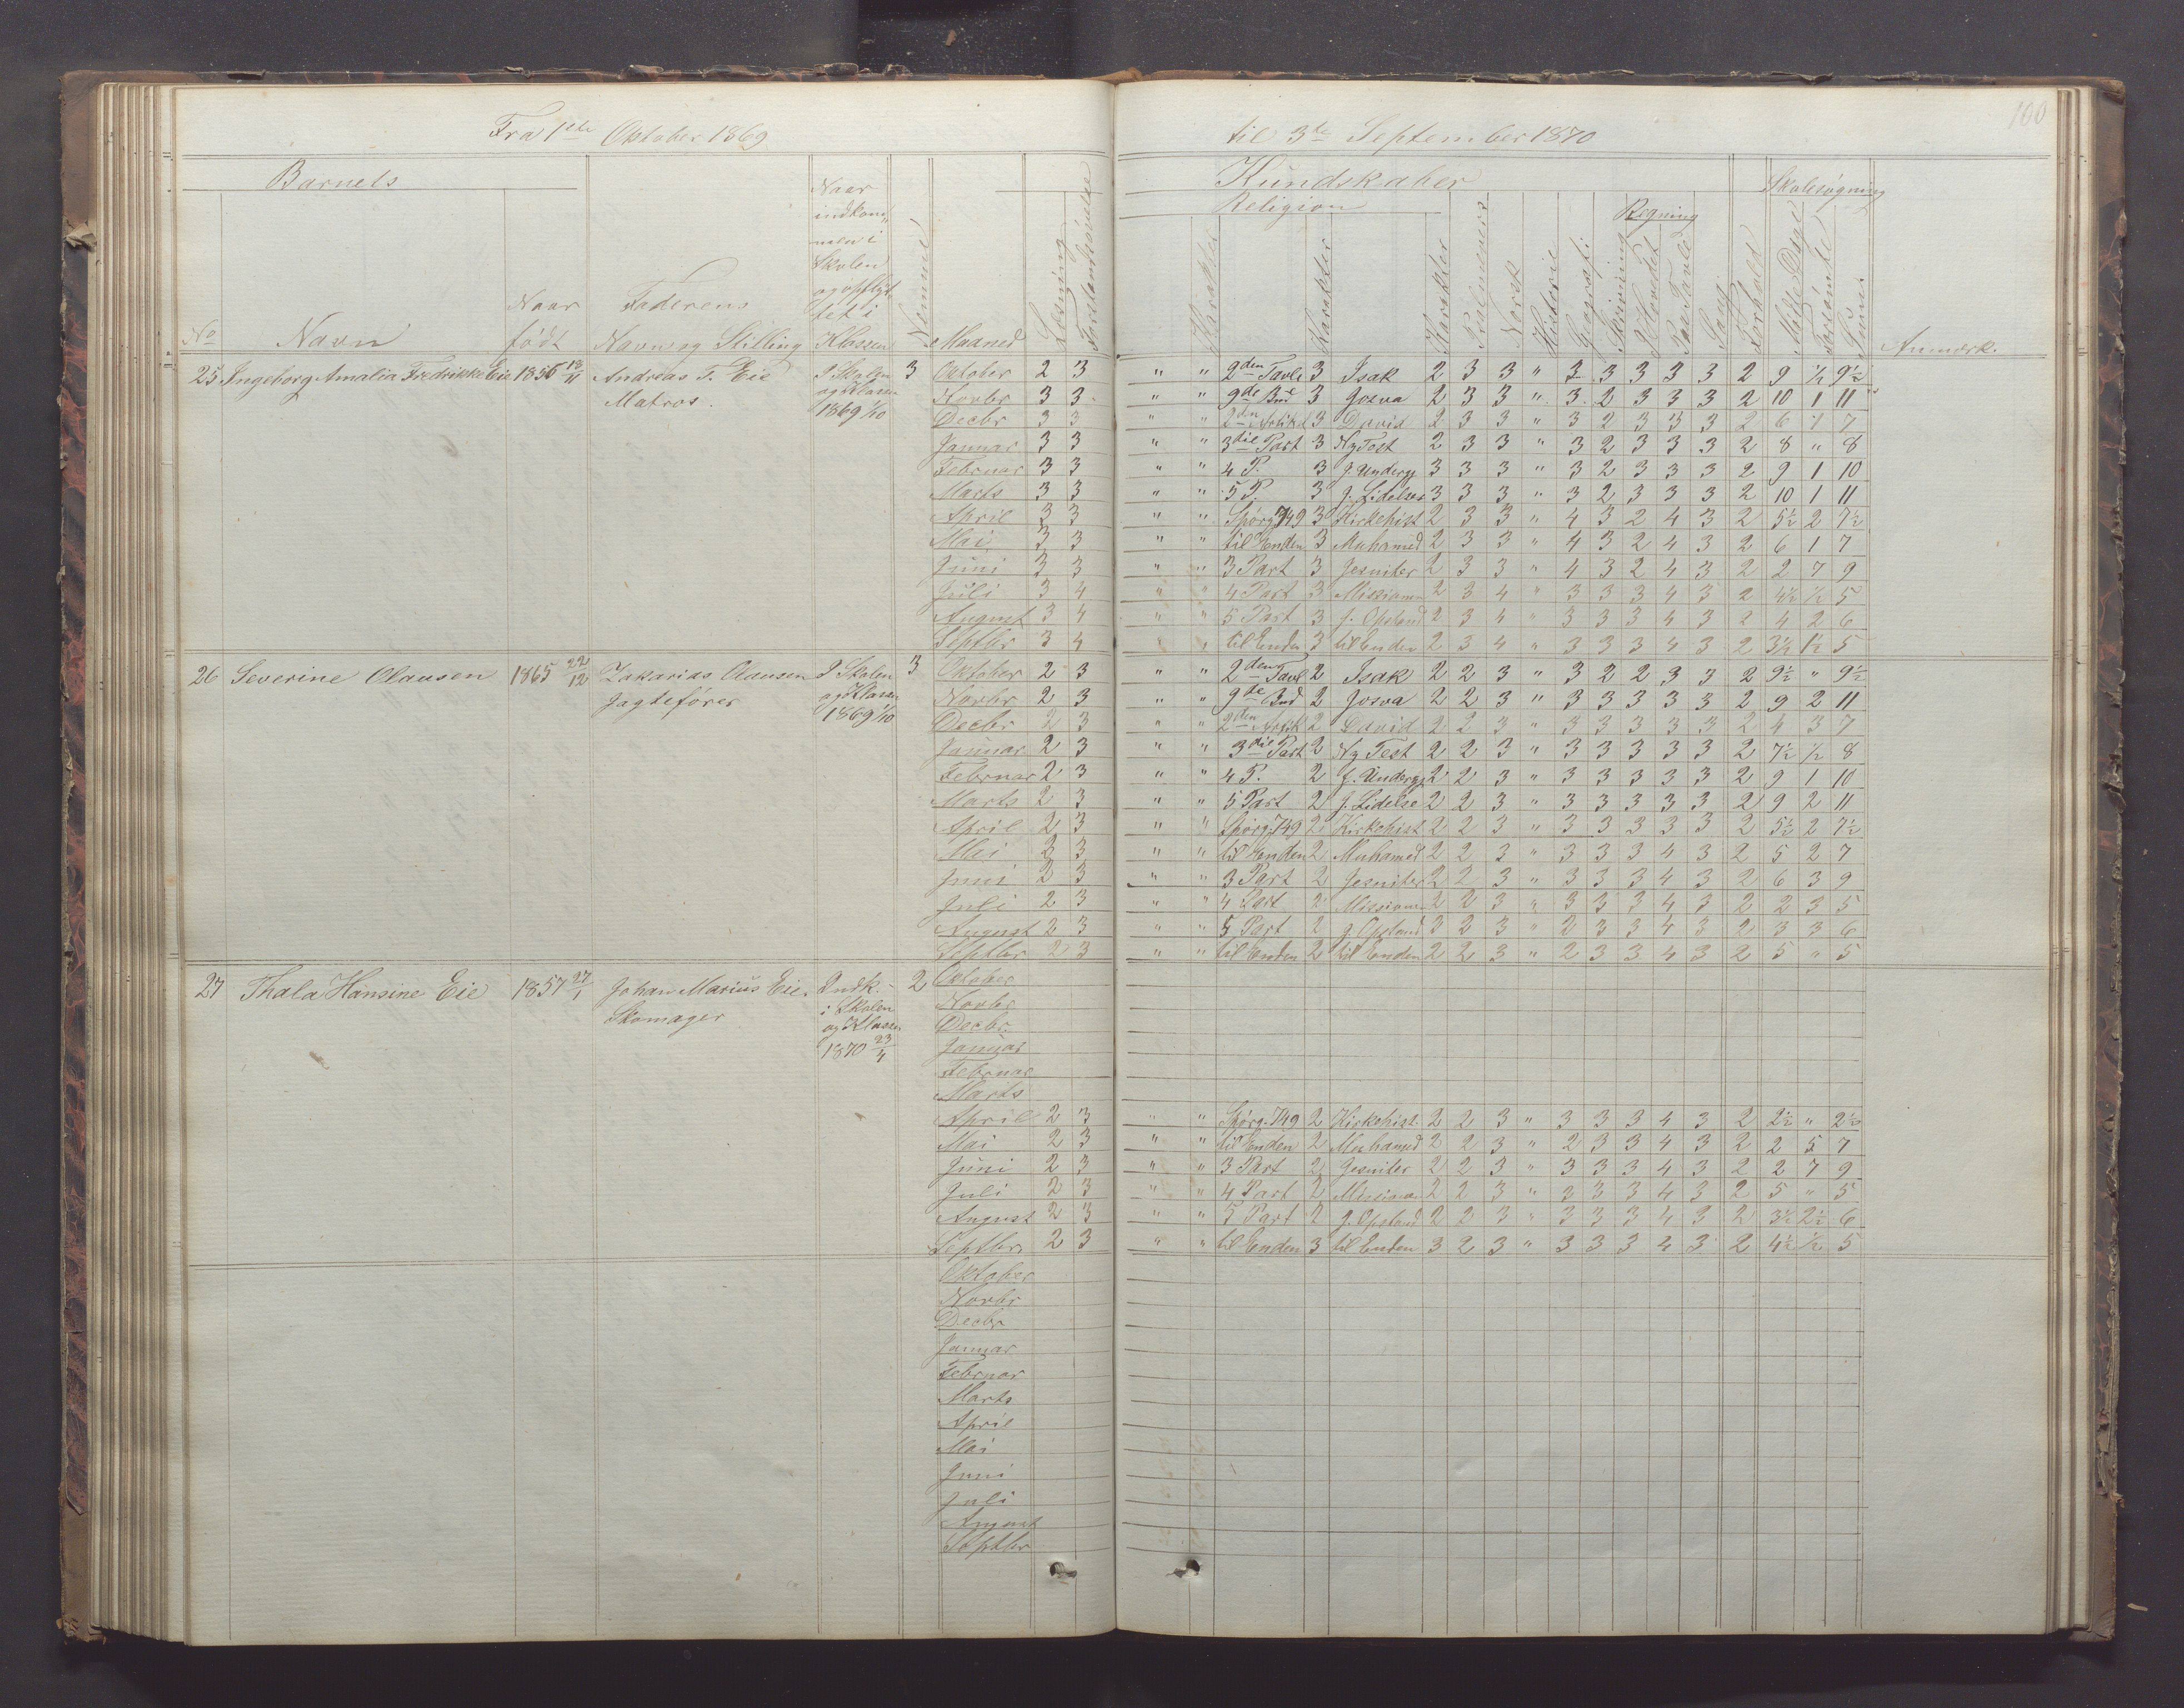 100
Fra 1ste Oktober 1869 til 3de September 1870
Barnets
Kundskaber
Skolesøgning
Religion
Regning
No
Navn
Naar
født
Faderens
Navn og Stilling
Naar
indkom-
men i
Skolen
og opflyt-
tet i
Klassen
Nemme
Maaned
Læsning
Forstandsøvelse
Karakter
Karakter
Karakter
Psalmevers
Norsk
Historie
Geografi
Skrivning
I Hovedet
Paa Tavle
Sang
Forhold
Mødte Dage
Forsømte
Summa
Anmærk.
25 Ingeborg Amalia Fredrikke Eie 1856 18/11 Andreas T. Eie I Skolen 3 Oktober 2 3 " " 2den Tavle 3 Isak 2 3 3 " 3 3 3 3 3 2 9 ½ 9½
Matros. og Klassen Novbr 3 3 " " 9de Bud 3 Josva 2 3 3 " 3 2 3 3 3 2 10 1 11
1869 1/10 Decbr 3 3 " " 2den Artikl 3 David 2 3 3 " 3 2 3 3 3 2 6 1 7
Januar 3 3 " " 3die Part 3 Ny Test 2 3 3 " 3 2 3 3 3 2 8 " 8
Februar 3 3 " " 4 P. 3 J. Undergj 3 3 3 " 3 2 3 3 3 2 9 1 10
Marts 3 3 " " 5 P. 3 J. Lidelse 3 3 3 " 3 2 3 3 3 2 10 1 11
April 3 3 " " Spørg. 749 3 Kirkehist 2 3 3 " 4 3 2 4 3 2 5½ 2 7½
Mai 3 3 " " til Enden 3 Muhamed 2 3 3 " 4 3 2 4 3 2 6 1 7
Juni 3 3 " " 3 Part 3 Jesuiter 2 3 3 " 4 3 2 4 3 2 2 7 9
Juli 3 4 " " 4 Part 3 Missionen 2 3 4 " 3 3 3 4 3 2 4½ ½ 5
August 3 4 " " 5 Part 3 J. Opstand 2 3 4 " 3 3 3 4 3 2 4 2 6
Septbr 3 4 " " til Enden 3 til Enden 2 3 4 " 3 3 3 4 3 2 3½ 1½ 5
26 Severine Olausen 1865 22/12 Zakarias Olausen I Skolen 3 Oktober 2 3 " " 2den Tavl 2 Isak 2 2 3 " 3 2 2 3 3 2 9½ " 9½
Jagtefører og Klassen Novbr 2 3 " " 9de Bud 2 Josva 2 2 3 " 3 3 3 3 3 2 9 2 11
1869 1/10 Decbr 2 3 " " 2den Artik 2 David 2 2 3 " 3 3 3 3 3 2 4 3 7
Januar 2 3 " " 3die Part 2 Ny Test 2 2 3 " 3 3 3 3 3 2 7½ ½ 8
Februar 2 3 " " 4 P. 2 J. Undergj 2 2 3 " 3 3 3 3 3 2 9 1 10
Marts 2 3 " " 5 Part 2 J. Lidelse 2 2 3 " 3 3 3 3 3 2 9 2 11
April 2 3 " " Spørg. 749 2 Kirkehist 2 2 3 " 3 3 3 3 3 2 5½ 2 7½
Mai 2 3 " " til Enden 2 Muhamed 2 2 3 " 3 3 3 4 3 2 5 2 7
Juni 2 3 " " 3 Part 2 Jesuiter 2 2 3 " 3 3 3 4 3 2 6 3 9
Juli 2 3 " " 4 Part 2 Missionen 2 2 3 " 3 3 3 4 3 2 2 3 5
August 2 3 " " 5 Part 2 J. Opstand 3 2 3 " 2 3 3 4 3 2 3 3 6
Septbr 2 3 " " til Enden 2 til Enden 2 2 3 " 2 3 3 4 3 2 5 " 5
27 Thala Hansine Eie 1857 27/1 Johan Marius Eie. Indk. 2 Oktober
Skomager i Skolen Novbr
og Klassen Decbr.
1870 23/4 Januar
Februar
Marts
April 2 3 " " Spørg. 749 2 Kirkehist. 2 2 3 " 3 3 3 4 3 2 2½ " 2½
Mai 2 3 " " til Enden 2 Muhamed 2 2 3 " 2 3 3 4 3 2 2 5 7
Juni 2 3 " " 3 Part 2 Jesuiter 2 2 3 " 3 3 3 4 3 2 2 7 9
Juli 2 3 " " 4 Part 2 Missionen 2 2 3 " 3 3 3 4 3 2 5 " 5
August 2 3 " " 5 Part 2 J. Opstand 2 2 3 " 3 3 3 4 3 2 3½ 2½ 6
Septbr. 2 3 " " til Enden 3 til Enden 3 2 3 " 3 3 3 4 3 2 4½ ½ 5
Oktober
Novbr
Decbr
Januar
Februar
Marts
April
Mai
Juni
Juli
August
Septbr